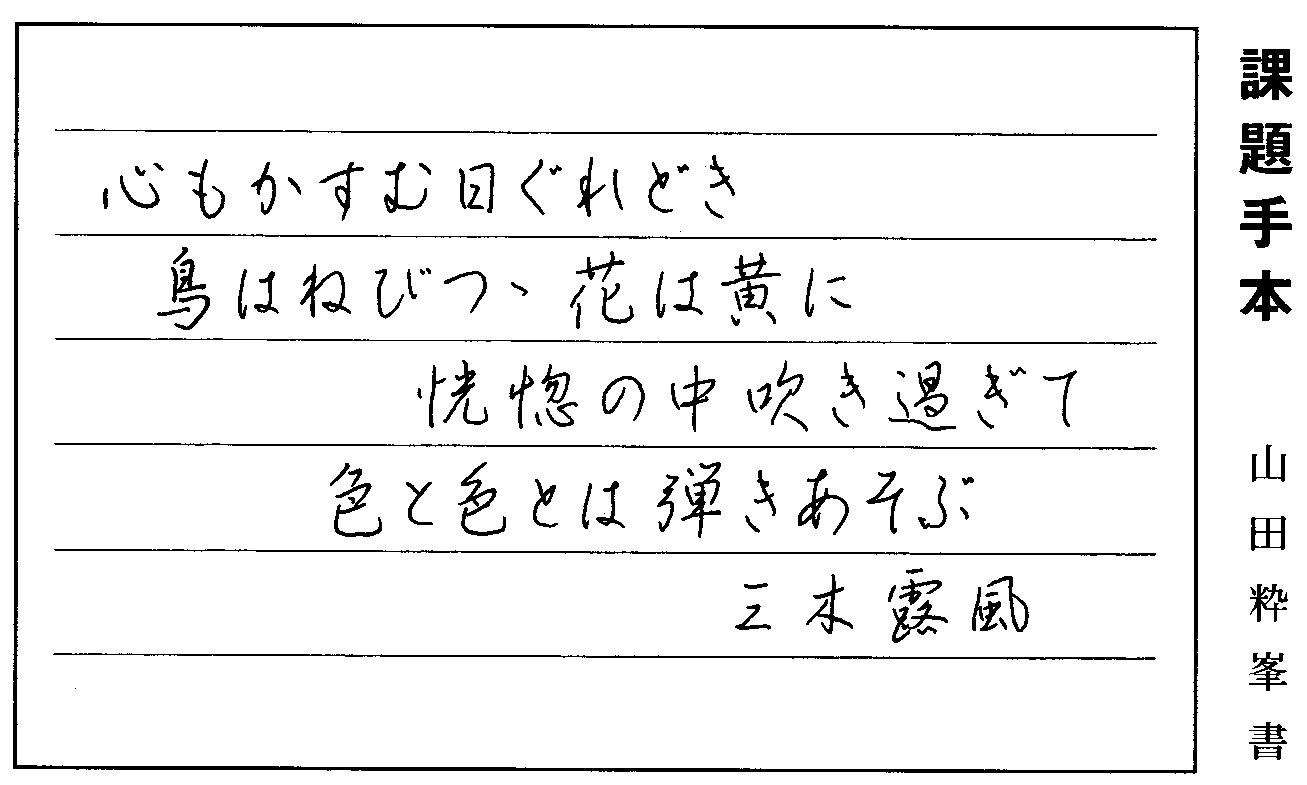 心もかすむ日ぐれどき
鳥はねびつゝ花は黄に
恍惚の中吹き過ぎて
色と色とは弾きあそぶ
三木露風
課題手本 山田粋峯書